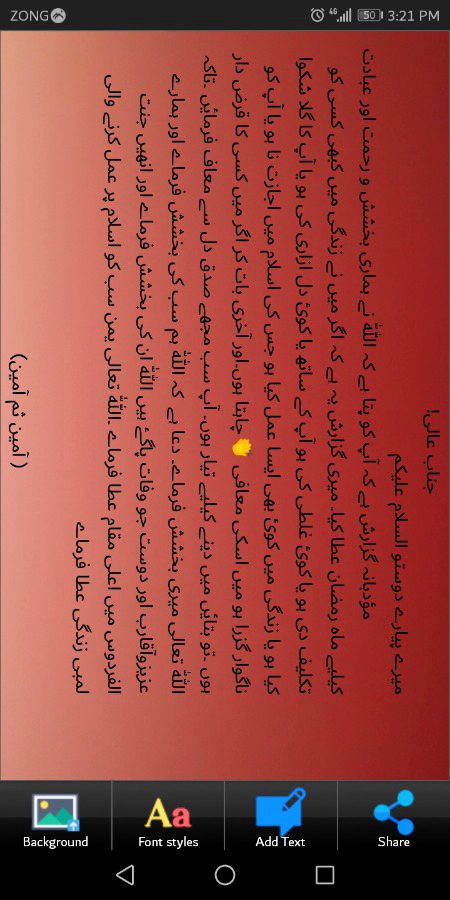 ZONG 4G 50 3:21 PM
جناب عالی!
میرے پیارے دوستو السلام علیکم
مؤدبانہ گزارش ہے کہ آپ کو پتا ہے کہ اللہ نے ہماری بخشش و رحمت اور عبادت
کیلیے ماہ رمضان عطا کیا۔ میری گزارش یہ ہے کہ اگر میں نے زندگی میں کبھی کسی کو
تکلیف دی ہو یا کوئ غلطی کی ہو آپ کے ساتھ یا کوئ دل ازاری کی ہو یا آپ کا گلا شکوا
کیا ہو یا زندگی میں کوئ بھی ایسا عمل کیا ہو جس کی اسلام میں اجازت نا ہو یا آپ کو
ناگوار گزرا ہو میں اسکی معافی 👏 چاہتا ہوں.اور آخری بات کر اگر میں کسی کا قرض دار
ہوں .تو بتائیں میں دینے کیلیے تیار ہوں. آپ سب مجھے صدق دل سے معاف فرمائیں .تاکہ
اللہ تعالی میری بخشش فرماے. دعا ہے کہ اللہ ہم سب کی بخشش فرماے اور ہمارے
عزیزوآقارب اور دوست جو وفات پاگۓ ہیں اللہ ان کی بخشش فرماے اور انھیں جنت
الفردوس میں اعلی مقام عطا فرماے .اللہ تعالی ہمن سب کو اسلام پر عمل کرنے والی
لمبی زندگی عطا فرماے
( آمین ثم آمین)
Background
Font styles
Add Text
Share